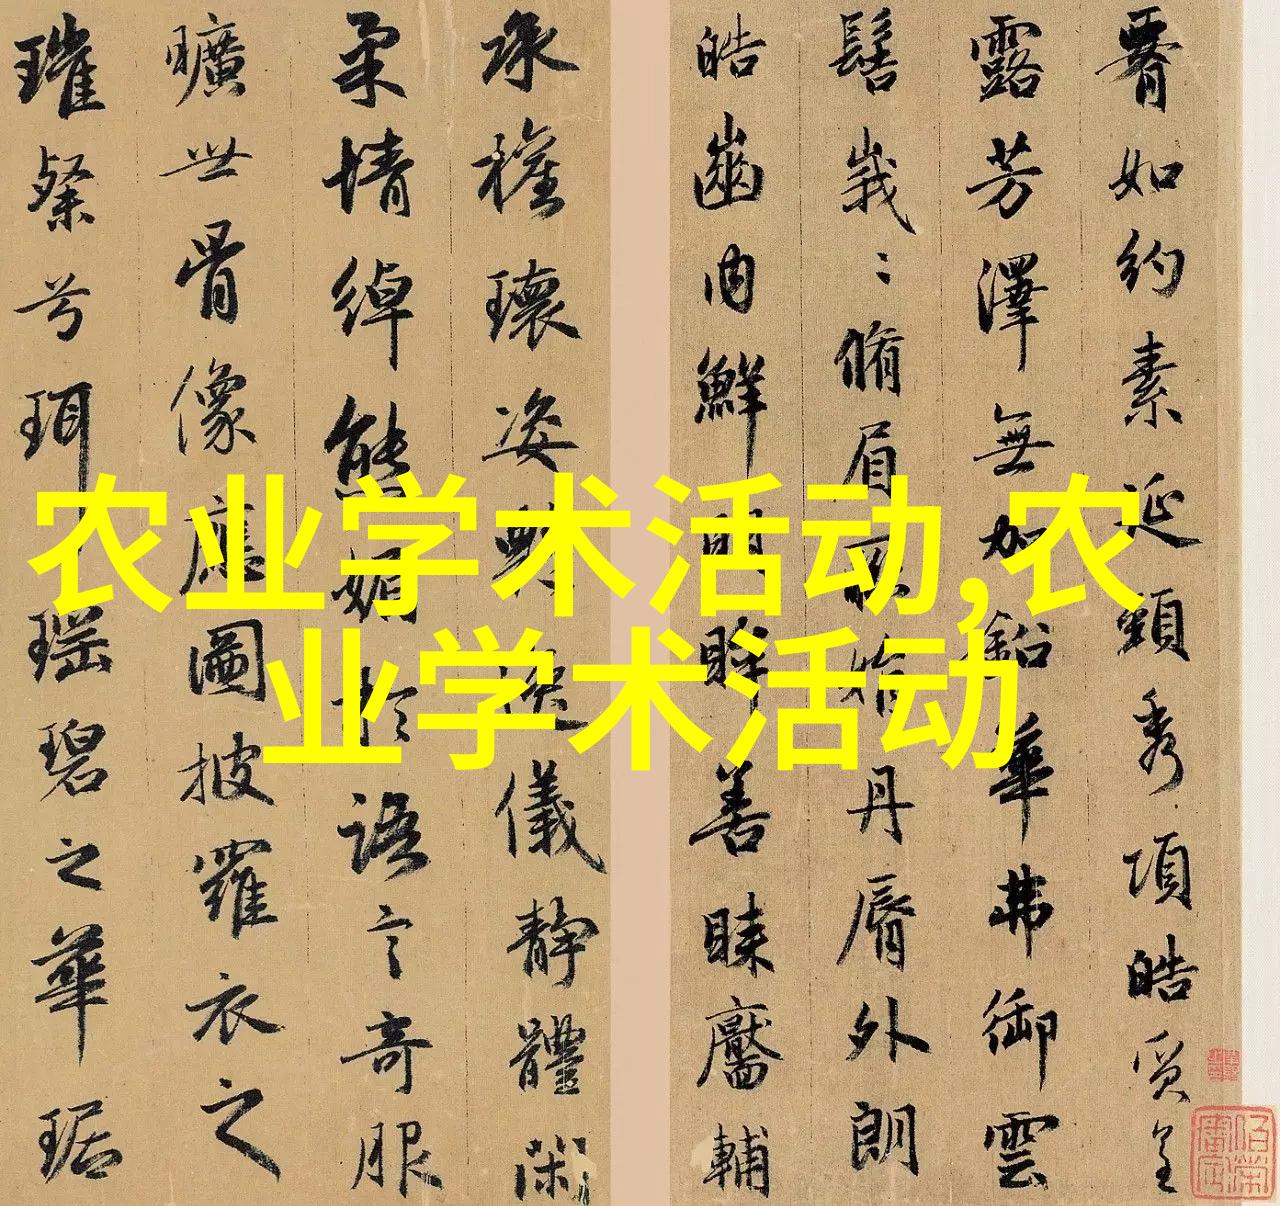 农业学术活动,农
业学术活动
腰如約素延頸秀項皓質呈
露芳澤無加鉛華弗御雲
髻峩〻脩眉聯娟丹脣外朗
皓齒內鮮明眸善睞靨輔
承權瓌姿豔逸儀靜體閑
柔情綽態媚於語言奇服
曠世骨像應圖披羅衣之
璀粲兮珥瑤碧之華琚